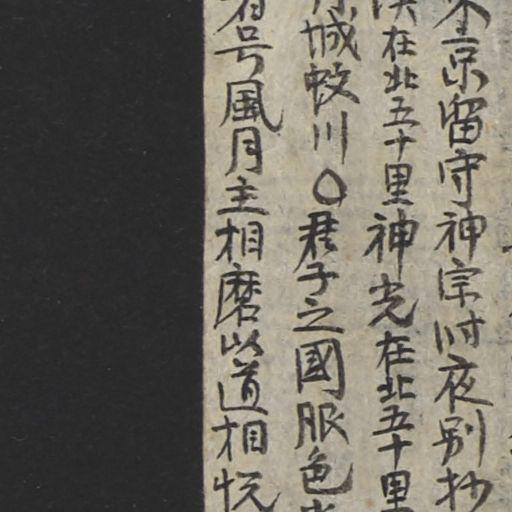 京留守神宗时夜别抄
在北五十里神光在北五十里
城蛟川○君子之國服色
号風月主相磨以道相悦